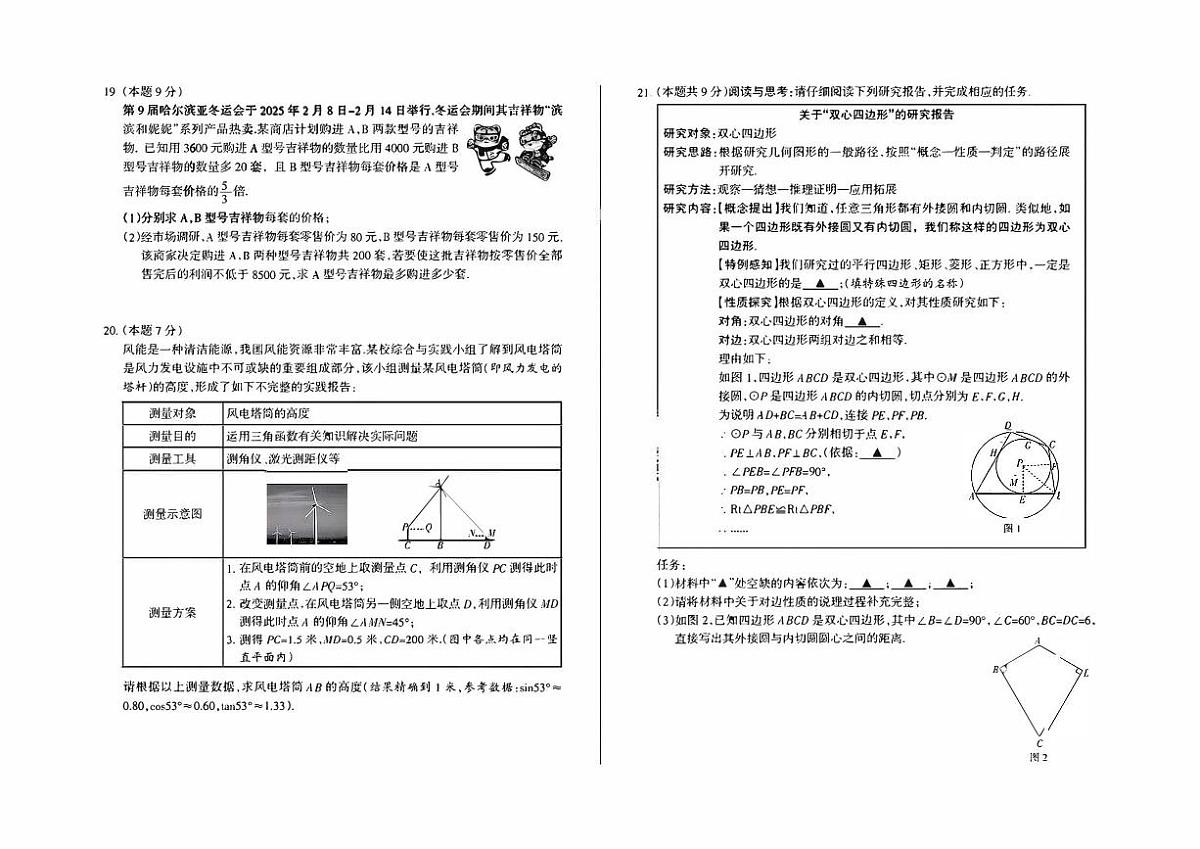 19 (本题9分)
第9届哈尔滨亚冬运会于2025年2月8日-2月14日举行.冬运会期间其吉祥物“滨
滨和妮妮”系列产品热卖.某商店计划购进A,B两款型号的吉祥
物. 已知用3600元购进A型号吉祥物的数量比用4000元购进B
型号吉祥物的数量多20套, 且B型号吉祥物每套价格是A型号
吉祥物每套价格的5/3倍.
(1)分别求A,B型号吉祥物每套的价格;
(2)经市场调研,A型号吉祥物每套零售价为80元,B型号吉祥物每套零售价为150元.
该商家决定购进A,B两种型号吉祥物共200套,若要使这批吉祥物按零售价全部
售完后的利润不低于8500元,求A型号吉祥物最多购进多少套.
20. (本题7分)
风能是一种清洁能源,我国风能资源非常丰富.某校综合与实践小组了解到风电塔筒
是风力发电设施中不可或缺的重要组成部分,该小组测量某风电塔筒(即风力发电的
塔杆)的高度,形成了如下不完整的实践报告:
测量对象 风电塔筒的高度
测量目的 运用三角函数有关知识解决实际问题
测量工具 测角仪、激光测距仪等
测量示意图
A
P Q N M
C B D
测量方案
1. 在风电塔筒前的空地上取测量点C, 利用测角仪PC测得此时
点A的仰角∠APQ=53°;
2. 改变测量点,在风电塔筒另一侧空地上取点D,利用测角仪MD
测得此时点A的仰角∠AMN=45°;
3. 测得PC=1.5米,MD=0.5米,CD=200米.(图中各点均在同一竖
直平面内)
请根据以上测量数据,求风电塔筒AB的高度(结果精确到1米,参考数据:sin53°≈
0.80,cos53°≈0.60,tan53°≈1.33).
21. (本题共9分)阅读与思考:请仔细阅读下列研究报告,并完成相应的任务.
关于“双心四边形”的研究报告
研究对象:双心四边形
研究思路:根据研究几何图形的一般路径,按照“概念—性质—判定”的路径展
开研究.
研究方法:观察—猜想—推理证明—应用拓展
研究内容:【概念提出】我们知道,任意三角形都有外接圆和内切圆. 类似地,如
果一个四边形既有外接圆又有内切圆, 我们称这样的四边形为双心
四边形.
【特例感知】我们研究过的平行四边形、矩形、菱形、正方形中,一定是
双心四边形的是 ▲ ;(填特殊四边形的名称)
【性质探究】根据双心四边形的定义,对其性质研究如下:
对角:双心四边形的对角 ▲ .
对边:双心四边形两组对边之和相等.
理由如下:
如图1,四边形ABCD是双心四边形,其中⊙M是四边形ABCD的外
接圆,⊙P是四边形ABCD的内切圆,切点分别为E,F,G,H.
为说明AD+BC=AB+CD,连接PE,PF,PB.
∵⊙P与AB,BC分别相切于点E,F,
∴PE⊥AB,PF⊥BC,(依据: ▲ )
∴∠PEB=∠PFB=90°,
∵PB=PB,PE=PF,
∴Rt△PBE≌Rt△PBF,
∴……
D
G C
H
P F
M
A E
图1
任务:
(1)材料中“▲”处空缺的内容依次为: ▲ ; ▲ ; ▲ ;
(2)请将材料中关于对边性质的说理过程补充完整;
(3)如图2,已知四边形ABCD是双心四边形,其中∠B=∠D=90°,∠C=60°,BC=DC=6,
直接写出其外接圆与内切圆圆心之间的距离.
A
B
C
图2